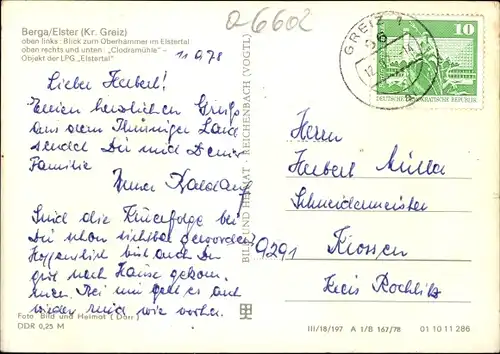 Berga/Elster (Kr. Greiz)
oben links: Blick zum Oberhammer im Elstertal
oben rechts und unten: „Clodramühle" -
Objekt der LPG „Elstertal"
Q6602
11.9.78
Lieber Herbert!
Einen herzlichen Gruß
aus dem Thüringer Land
sendet Dir und Deiner
Familie
Sind die Kurerfolge bei
Dir schon sichtbar geworden?
Hoffentlich bist auch Du
gut nach Hause gekom-
men. Bei mir geht es auch
wieder rund wie vorher.
Foto: Bild und Heimat (Dörr)
DDR 0,25 M
BILD UND HEIMAT · REICHENBACH (VOGTL)
GREIZ 1
66
10
DEUTSCHE DEMOKRATISCHE REPUBLIK
Herrn
Herbert Müller
Schneidermeister
9291
Kreis Rochlitz
III/18/197 A 1/B 167/78 01 10 11 286